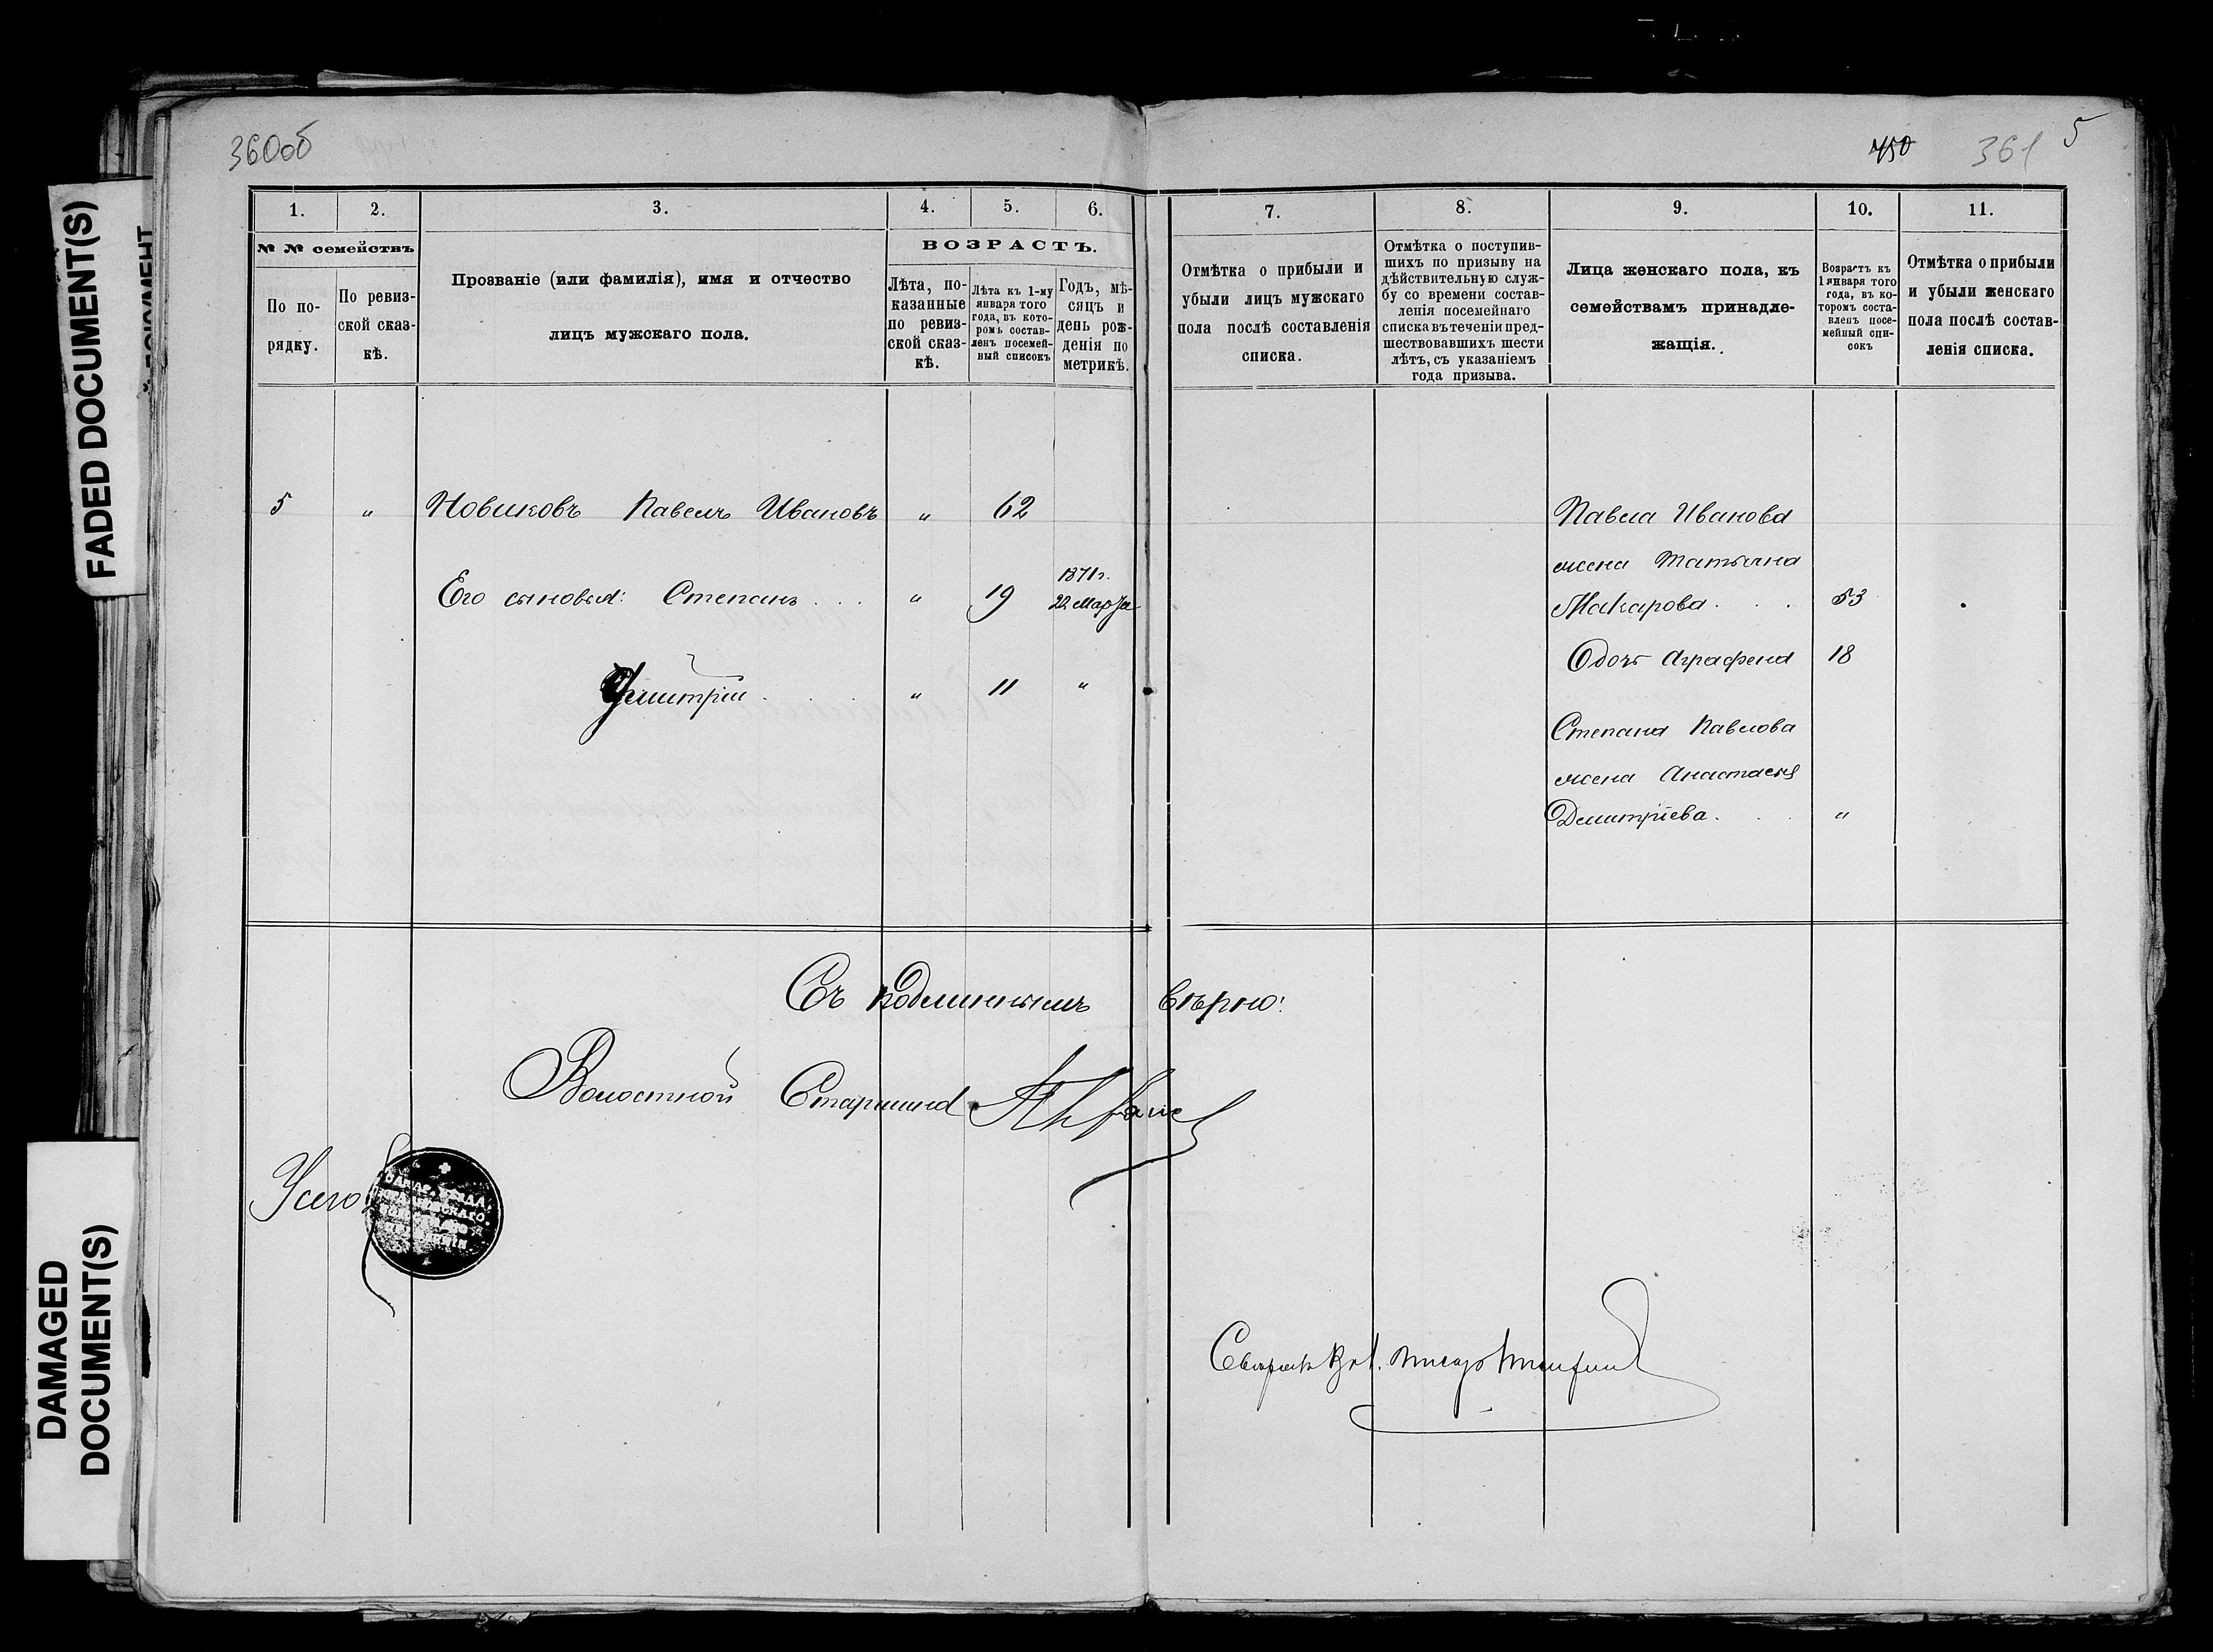 FADED DOCUMENT(S)
DAMAGED DOCUMENT(S)
360об
450 361 5
1. 2. 3. 4. 5. 6. 7. 8. 9. 10. 11.
№ № семействъ
По по-
рядку.
По ревиз-
ской сказ-
кѣ.
Прозваніе (или фамилія), имя и отчество
лицъ мужскаго пола.
ВОЗРАСТЪ.
Лѣта, по-
казанные
по ревиз-
ской сказ-
кѣ.
Лѣта къ 1-му
января того
года, въ кото-
ромъ состав-
ленъ посемей-
ный списокъ
Годъ, мѣ-
сяцъ и
день рож-
денія по
метрикѣ.
Отмѣтка о прибыли и
убыли лицъ мужскаго
пола послѣ составленія
списка.
Отмѣтка о поступив-
шихъ по призыву на
дѣйствительную служ-
бу со времени состав-
ленія посемейнаго
списка въ теченіи пред-
шествовавшихъ шести
лѣтъ, съ указаніемъ
года призыва.
Лица женскаго пола, къ
семействамъ принадле-
жащія.
Возрастъ къ
1 января того
года, въ ко-
торомъ соста-
вленъ посе-
мейный спи-
сокъ
Отмѣтка о прибыли
и убыли женскаго
пола послѣ состав-
ленія списка.
5 „ Новиковъ Павелъ Ивановъ „ 62
Его сыновья: Степанъ . . . „ 19 1871 г. 22 Марта
Дмитрій . . . „ 11 „
Павла Иванова
жена Татьяна
Макарова . . . 53
Дочь Аграфена 18
Степана Павлова
жена Анастасія
Дмитріева . . . „
Съ подлиннымъ вѣрно:
Волостной Старшина